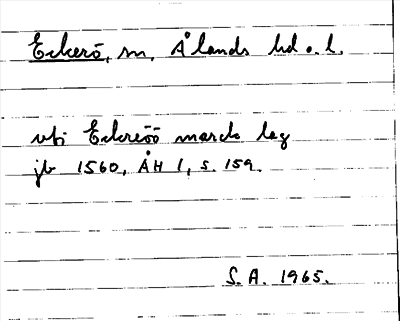 Eckerö, sn, Ålands hd o. l.
vtj Eckereöö marcke lag
jb 1560, ÅH 1, s. 159.
S.A. 1965.